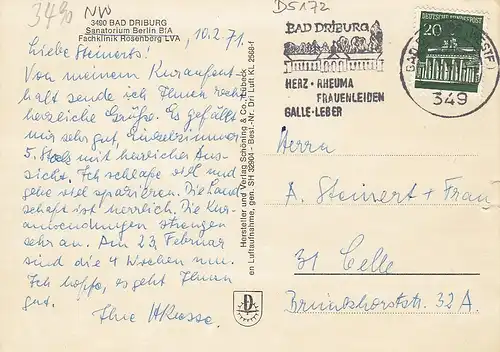 34% NW
D5172
3490 BAD DRIBURG
Sanatorium Berlin BfA
Fachklinik Rosenberg LVA
10.2.71
Liebe Steinerts!
Von meinem Kuraufent-
halt sende ich Ihnen recht
herzliche Grüße. Es gefällt
mir sehr gut, Einzelzimmer
5. Stock mit herrlicher Aus-
sicht. Ich schlafe viel und
gehe viel spazieren. Die Land
schaft ist herrlich. Die Kur-
anwendungen strengen
sehr an. Am 23. Februar
sind die 4 Wochen um.
Ich hoffe, es geht Ihnen
gut.
Ihre
Hersteller und Verlag Schöning & Co., Lübeck
en Luftaufnahme, gen. SH 32904 - Best.-Nr. Dri Luft KL 2568-f
BAD DRIBURG
HERZ · RHEUMA
FRAUENLEIDEN
GALLE · LEBER
DEUTSCHE BUNDESPOST
20
349
Herrn
A. Steinert + Frau
31 Celle
Brunkhorststr. 32A.